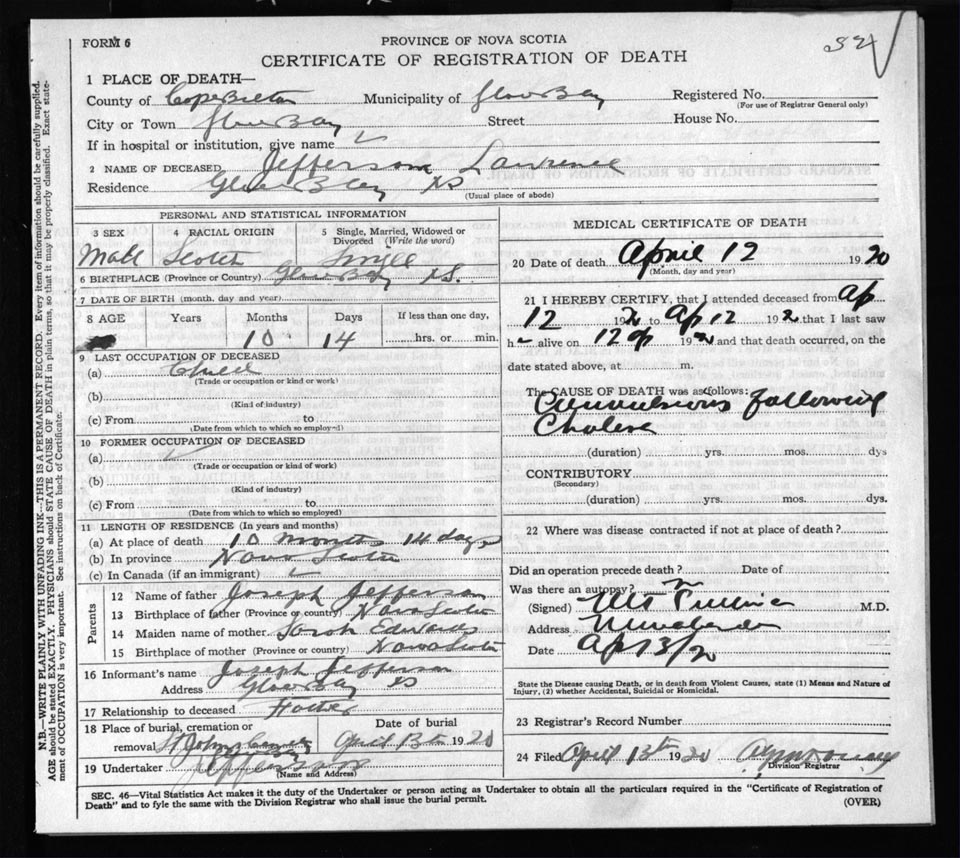 FORM 6
PROVINCE OF NOVA SCOTIA
CERTIFICATE OF REGISTRATION OF DEATH
1 PLACE OF DEATH—
County of Cape Breton Municipality of Glace Bay Registered No.
(For use of Registrar General only)
City or Town Glace Bay Street House No.
If in hospital or institution, give name
2 NAME OF DECEASED Jefferson Lawrence
Residence Glace Bay NS
(Usual place of abode)
PERSONAL AND STATISTICAL INFORMATION
3 SEX 4 RACIAL ORIGIN 5 Single, Married, Widowed or Divorced (Write the word)
Male Scotch Single
6 BIRTHPLACE (Province or Country) Glace Bay N.S.
7 DATE OF BIRTH (month, day and year)
8 AGE Years Months Days If less than one day,
10 14 hrs. or min.
9 LAST OCCUPATION OF DECEASED
(a) Child
(Trade or occupation or kind or work)
(b)
(Kind of industry)
(c) From to
(Date from which to which so employed)
10 FORMER OCCUPATION OF DECEASED
(a)
(Trade or occupation or kind of work)
(b)
(Kind of industry)
(c) From to
(Date from which to which so employed)
11 LENGTH OF RESIDENCE (In years and months)
(a) At place of death 10 months 14 days
(b) In province Nova Scotia
(c) In Canada (if an immigrant)
Parents
12 Name of father Joseph Jefferson
13 Birthplace of father (Province or country) Nova Scotia
14 Maiden name of mother Sarah Edwards
15 Birthplace of mother (Province or country) Nova Scotia
16 Informant's name Joseph Jefferson
Address Glace Bay NS
17 Relationship to deceased Father
18 Place of burial, cremation or Date of burial
removal St Johns April 13th 1920
19 Undertaker
(Name and Address)
MEDICAL CERTIFICATE OF DEATH
20 Date of death April 12 1920
(Month, day and year)
21 I HEREBY CERTIFY, that I attended deceased from Ap
12 192 to Ap 12 192 that I last saw
h alive on 12 Ap 192 and that death occurred, on the
date stated above, at m.
The CAUSE OF DEATH was as follows:
Convulsions following
Cholera
(duration) yrs. mos. dys
CONTRIBUTORY
(Secondary)
(duration) yrs. mos. dys.
22 Where was disease contracted if not at place of death?
Did an operation precede death? Date of
Was there an autopsy?
(Signed) M.D.
Address
Date Ap 13/20
State the Disease causing Death, or in death from Violent Causes, state (1) Means and Nature of
Injury, (2) whether Accidental, Suicidal or Homicidal.
23 Registrar's Record Number
24 Filed April 13th 1920
Division Registrar
SEC. 46—Vital Statistics Act makes it the duty of the Undertaker or person acting as Undertaker to obtain all the particulars required in the "Certificate of Registration of
Death" and to fyle the same with the Division Registrar who shall issue the burial permit.
(OVER)
N.B.—WRITE PLAINLY WITH UNFADING INK—THIS IS A PERMANENT RECORD. Every item of information should be carefully supplied.
AGE should be stated EXACTLY. PHYSICIANS should STATE CAUSE OF DEATH in plain terms, so that it may be properly classified. Exact state-
ment of OCCUPATION is very important. See instructions on back of Certificate.